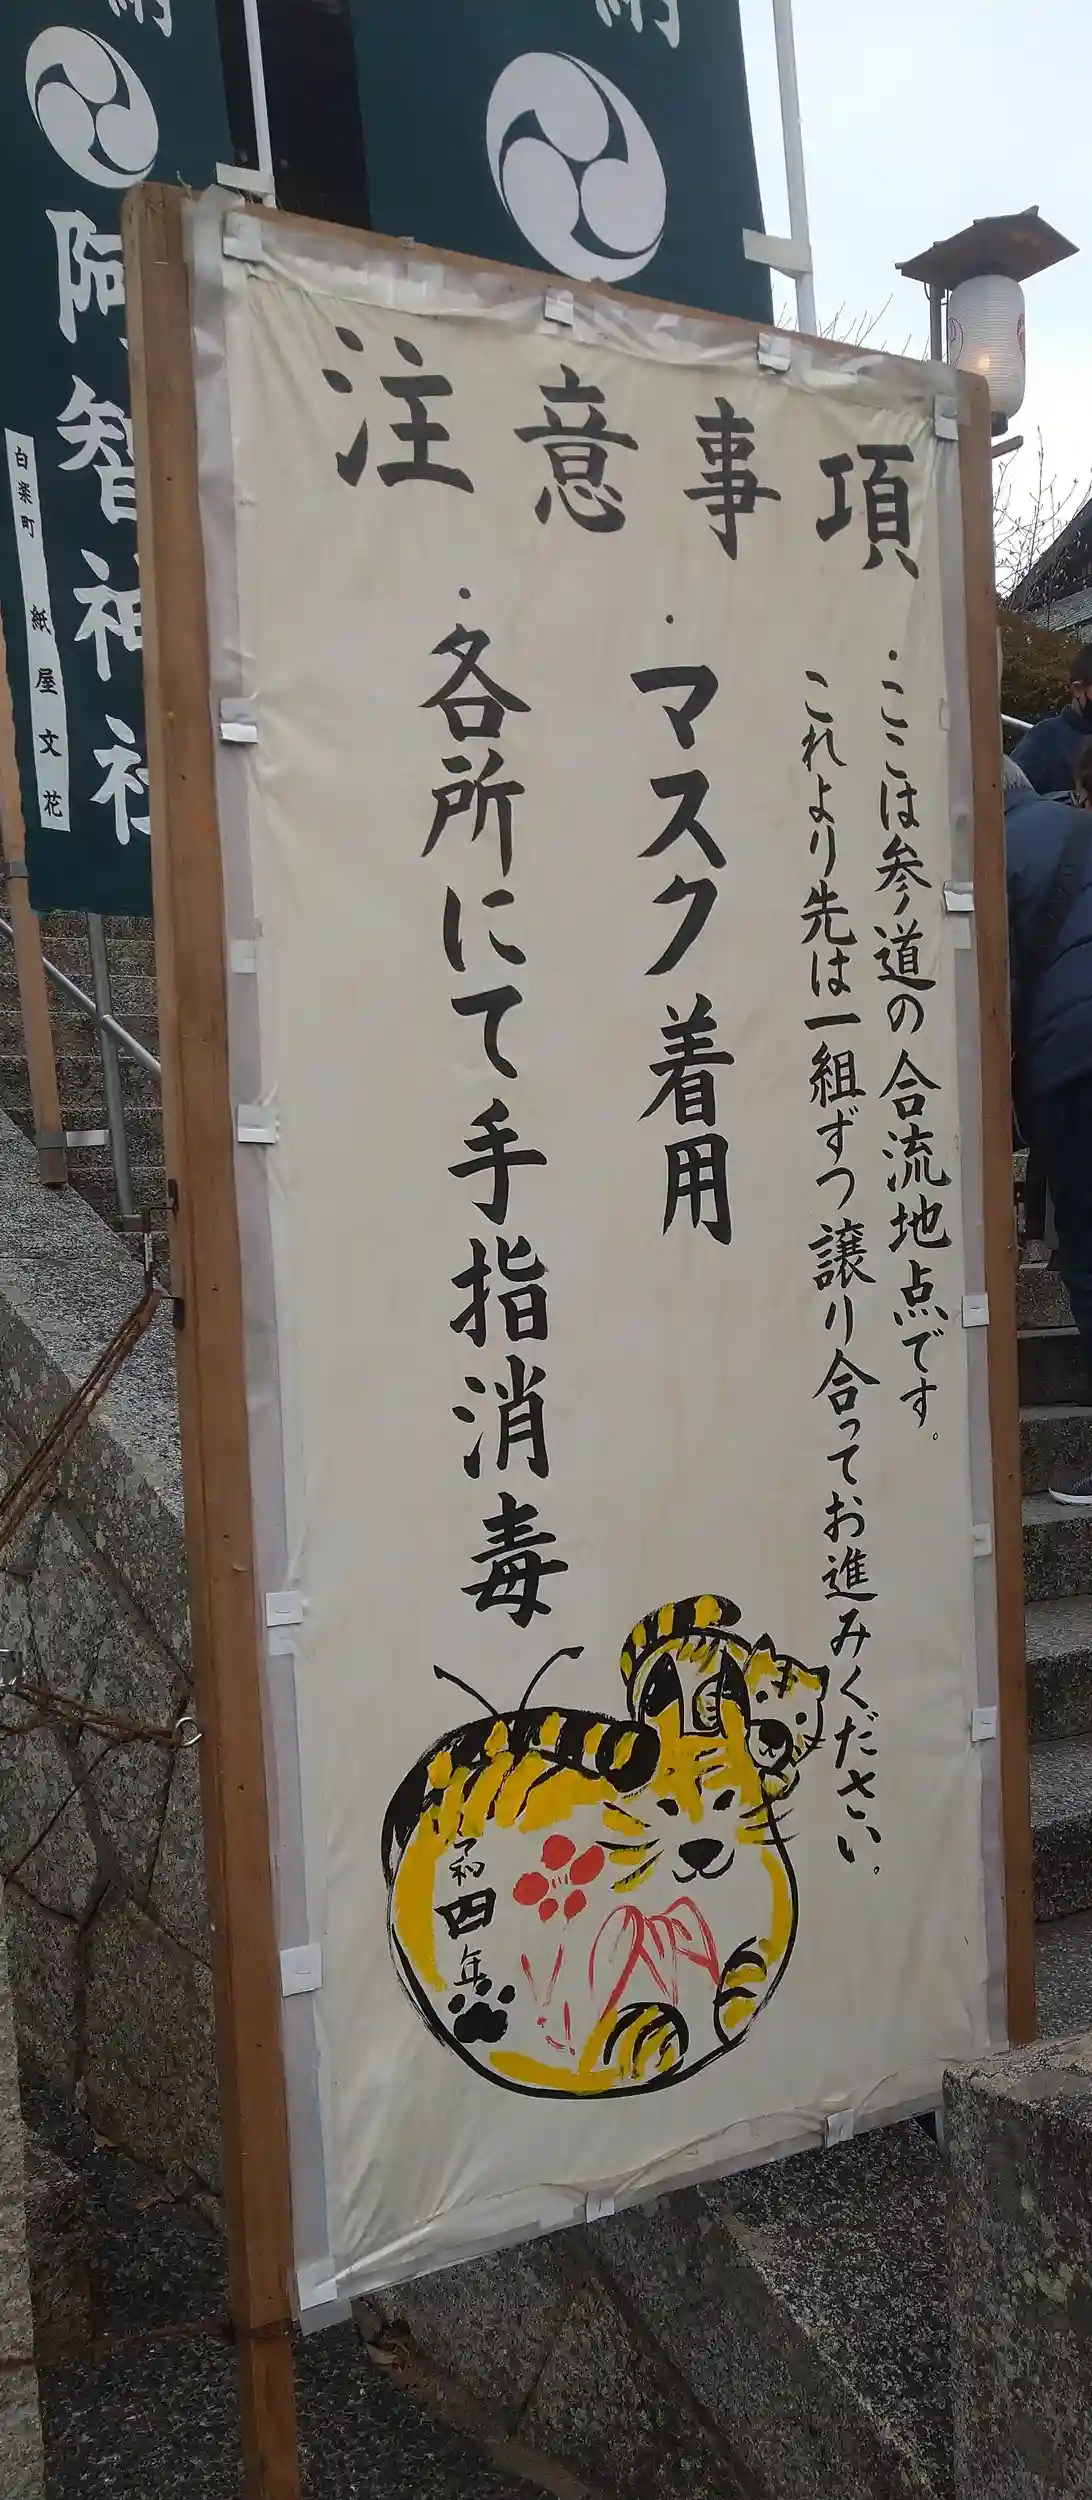 注意事項
・ここは参道の合流地点です。
これより先は一組ずつ譲り合ってお進みください。
・マスク着用
・各所にて手指消毒
令和四年
阿智神社
白楽町 紙屋文花